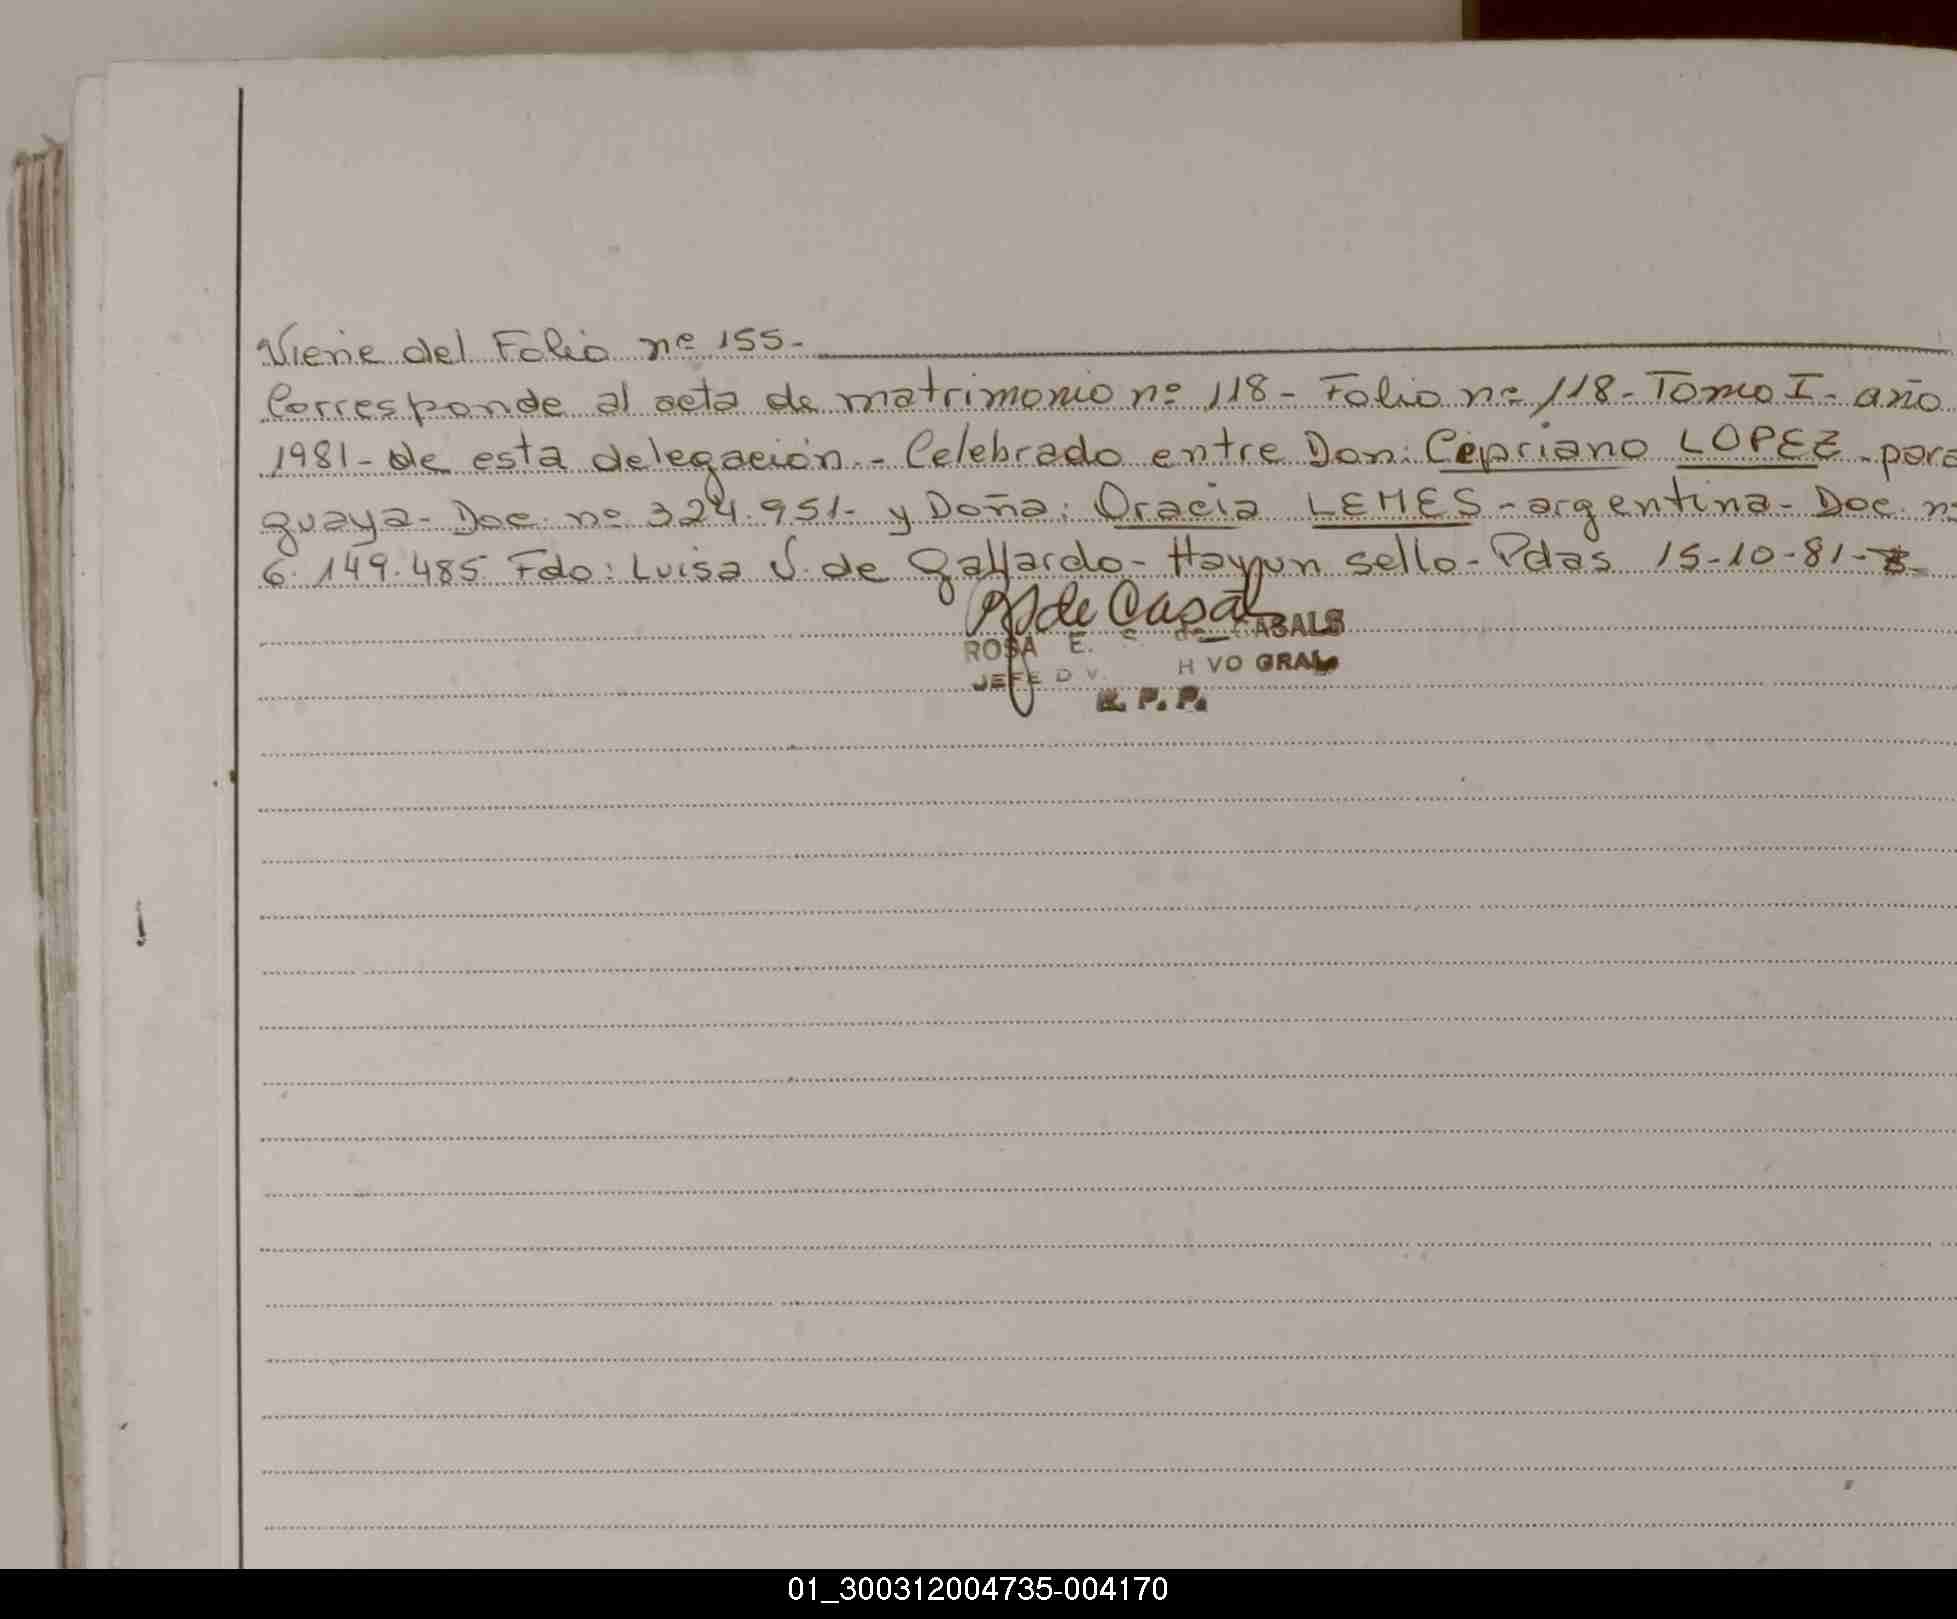 Viene del Folio nº 155.-
Corresponde al acta de matrimonio nº 118 - Folio nº 118 - Tomo I - año
1981 - de esta delegación. - Celebrado entre Don: Cipriano LOPEZ - para
guaya - Doc. nº 324.951 - y Doña: Oracia LEMES - argentina - Doc. nº
6.149.485 Fdo: Luisa V. de Gallardo - Hay un sello - Pdas 15-10-81-
de Casal
ROSA E. S. de CASALS
JEFE D V. H VO GRAL
R. P. P.
01_300312004735-004170